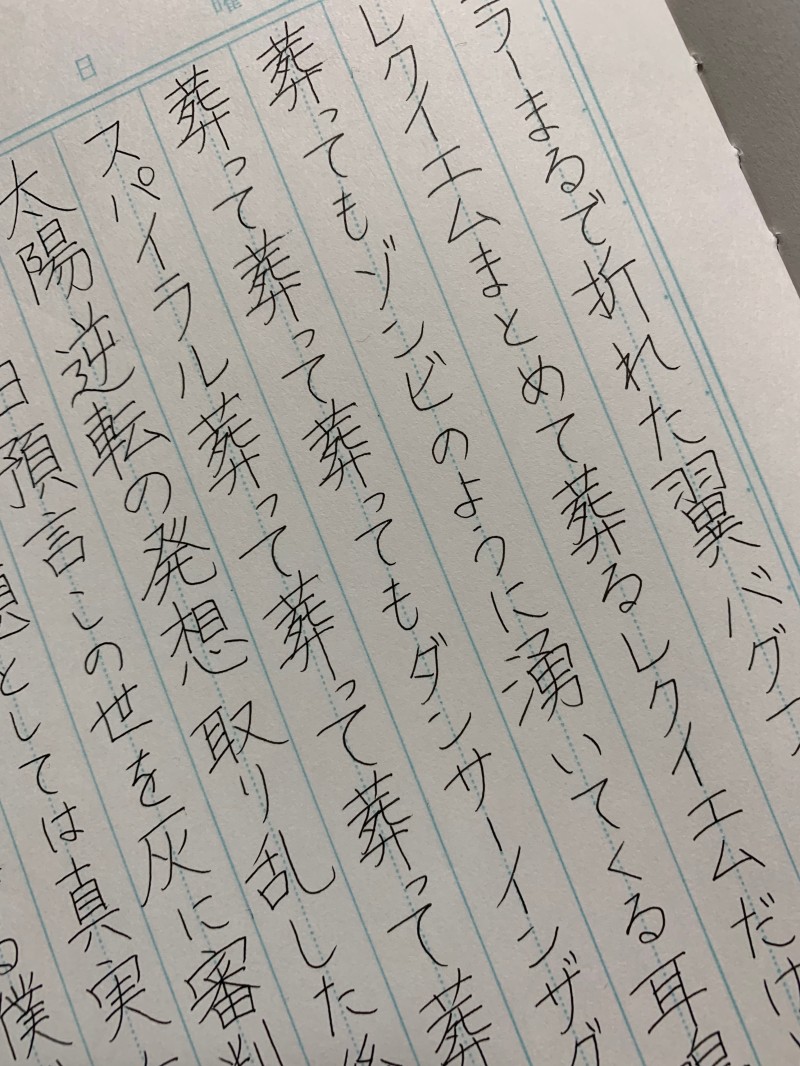 曜
日
ラーまるで折れた翼バグ
レクイエムまとめて葬るレクイエムだけ
葬ってもゾンビのように湧いてくる耳鳴
葬って葬って葬ってもダンサーインザグ
スパイラル葬って葬って葬って葬
太陽逆転の発想 取り乱した
日預言しの世を灰に審判
想としては真実
る僕